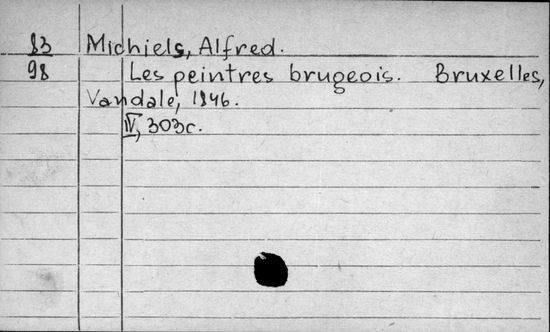 83 Michiels, Alfred.
98 Les peintres brugeois. Bruxelles,
Vandale, 1846.
IV, 303c.